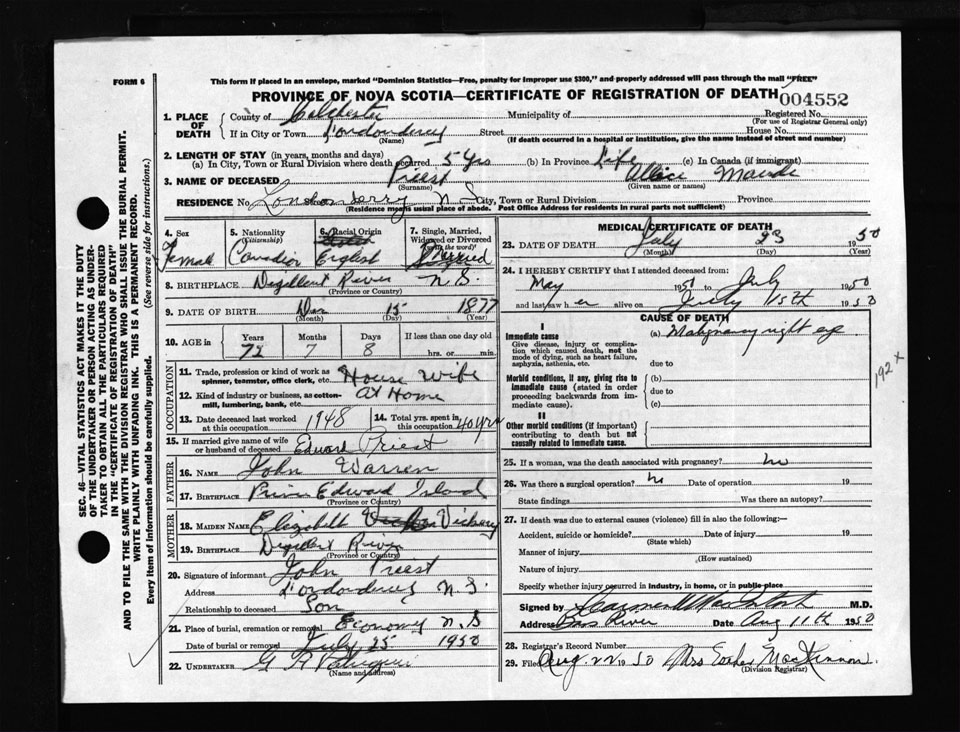 FORM 6
This form if placed in an envelope, marked "Dominion Statistics—Free, penalty for improper use $300," and properly addressed will pass through the mail "FREE"
PROVINCE OF NOVA SCOTIA—CERTIFICATE OF REGISTRATION OF DEATH
004552
1. PLACE OF DEATH
County of Colchester
Municipality of
Registered No.
(For use of Registrar General only)
If in City or Town Londonderry Street House No.
(Name)
(If death occurred in a hospital or institution, give the name instead of street and number)
2. LENGTH OF STAY (in years, months and days)
(a) In City, Town or Rural Division where death occurred 5 Yrs (b) In Province Life (c) In Canada (if immigrant)
3. NAME OF DECEASED Priest Maude
(Surname) (Given name or names)
RESIDENCE No. Londonderry N.S. City, Town or Rural Division Province
(Residence means usual place of abode. Post Office Address for residents in rural parts not sufficient)
4. Sex
Female
5. Nationality
(Citizenship)
Canadian
6. Racial Origin
English
7. Single, Married, Widowed or Divorced
(write the word)
Married
8. BIRTHPLACE River N.S.
(Province or Country)
9. DATE OF BIRTH 15 1877
(Month) (Day) (Year)
10. AGE in
Years Months Days If less than one day old
72 7 8 hrs. or min.
OCCUPATION
11. Trade, profession or kind of work as spinner, teamster, office clerk, etc. House Wife
12. Kind of industry or business, as cotton-mill, lumbering, bank, etc. At Home
13. Date deceased last worked at this occupation 1948
14. Total yrs. spent in this occupation 40 yrs
15. If married give name of wife or husband of deceased Edward Priest
FATHER
16. NAME John Warren
17. BIRTHPLACE Prince Edward Island
(Province or Country)
MOTHER
18. MAIDEN NAME Elizabeth Vickery
19. BIRTHPLACE River
(Province or Country)
20. Signature of informant John Priest
Address Londonderry N.S.
Relationship to deceased Son
21. Place of burial, cremation or removal Economy N.S
Date of burial or removal July 25 1950
22. UNDERTAKER
(Name and address)
MEDICAL CERTIFICATE OF DEATH
23. DATE OF DEATH July 23 1950
(Month) (Day) (Year)
24. I HEREBY CERTIFY that I attended deceased from:
May 1950 to July 1950
and last saw her alive on July 15th 1950
CAUSE OF DEATH
I
Immediate cause
Give disease, injury or complication which caused death, not the mode of dying, such as heart failure, asphyxia, asthenia, etc.
(a) Malignancy right eye
due to
Morbid conditions, if any, giving rise to immediate cause (stated in order proceeding backwards from immediate cause).
(b)
due to
(c)
II
Other morbid conditions (if important) contributing to death but not causally related to immediate cause.
192 x
25. If a woman, was the death associated with pregnancy? no
26. Was there a surgical operation? no Date of operation 19
State findings Was there an autopsy?
27. If death was due to external causes (violence) fill in also the following:—
Accident, suicide or homicide? Date of injury 19
(State which)
Manner of injury
(How sustained)
Nature of injury
Specify whether injury occurred in industry, in home, or in public place
Signed by M.D.
Address Bass River Date Aug 11th 1950
28. Registrar's Record Number
29. Filed Aug. 22 1950 Mrs MacKinnon
(Division Registrar)
SEC. 46—VITAL STATISTICS ACT MAKES IT THE DUTY
OF THE UNDERTAKER OR PERSON ACTING AS UNDER-
TAKER TO OBTAIN ALL THE PARTICULARS REQUIRED
IN THE "CERTIFICATE OF REGISTRATION OF DEATH"
AND TO FILE THE SAME WITH THE DIVISION REGISTRAR WHO SHALL ISSUE THE BURIAL PERMIT.
WRITE PLAINLY WITH UNFADING INK. THIS IS A PERMANENT RECORD.
Every item of information should be carefully supplied. (See reverse side for instructions.)